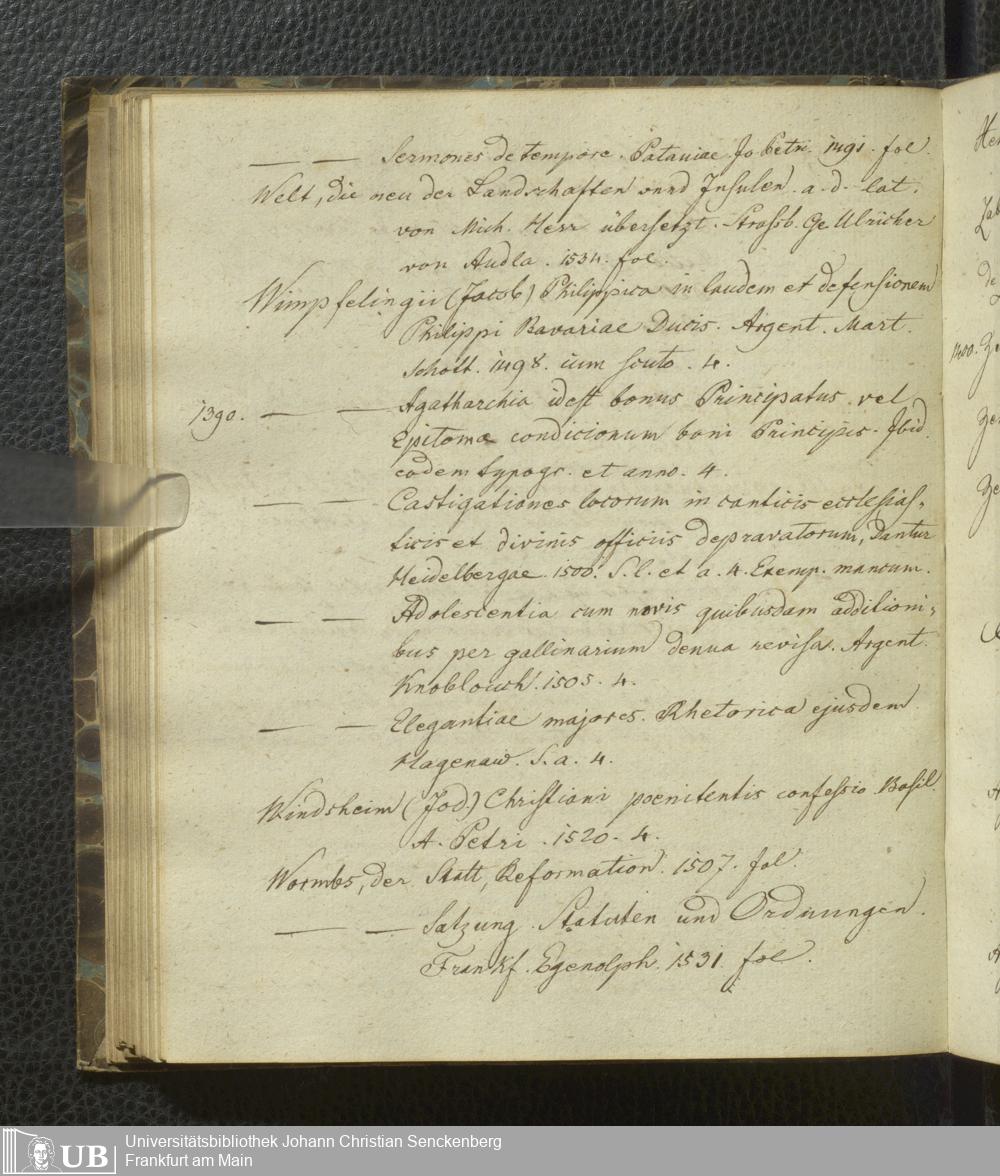 — — Sermones de tempore. Pataviae. Jo Petri. 1491. fol.
Welt, die neu der Landschaften vnnd Insulen. a. d. lat.
von Mich. Herr übersetzt. Strassb. Ge Ulricher
von Andla. 1534. fol.
Wimpfelingii (Jacob) Philippica in laudem et defensionem
Philippi Bavariae Ducis. Argent. Mart.
Schott. 1498. cum scuto. 4.
1390. — — Agatharchia idest bonus Principatus vel
Epitoma condicionum boni Principis. Ibid.
eodem typogr. et anno. 4.
— — Castigationes locorum in canticis ecclesias-
ticis et divinis officiis depravatorum, Dantur
Heidelbergae. 1500. S. l. et a. 4. Exemp. mancum.
— — Adolescentia cum novis quibusdam additioni-
bus per gallinarium denua revisa. Argent.
Knoblouch. 1505. 4.
— — Elegantiae majores. Rhetorica ejusdem
Hagenaw. S. a. 4.
Windsheim (Jod.) Christiani poenitentis confessio. Basil.
A. Petri. 1520. 4.
Wormbs, der Statt, Reformation. 1507. fol.
— — Satzung. Statuten und Ordnungen.
Frankf. Egenolph. 1531. fol.
1400.
UB
Universitätsbibliothek Johann Christian Senckenberg
Frankfurt am Main